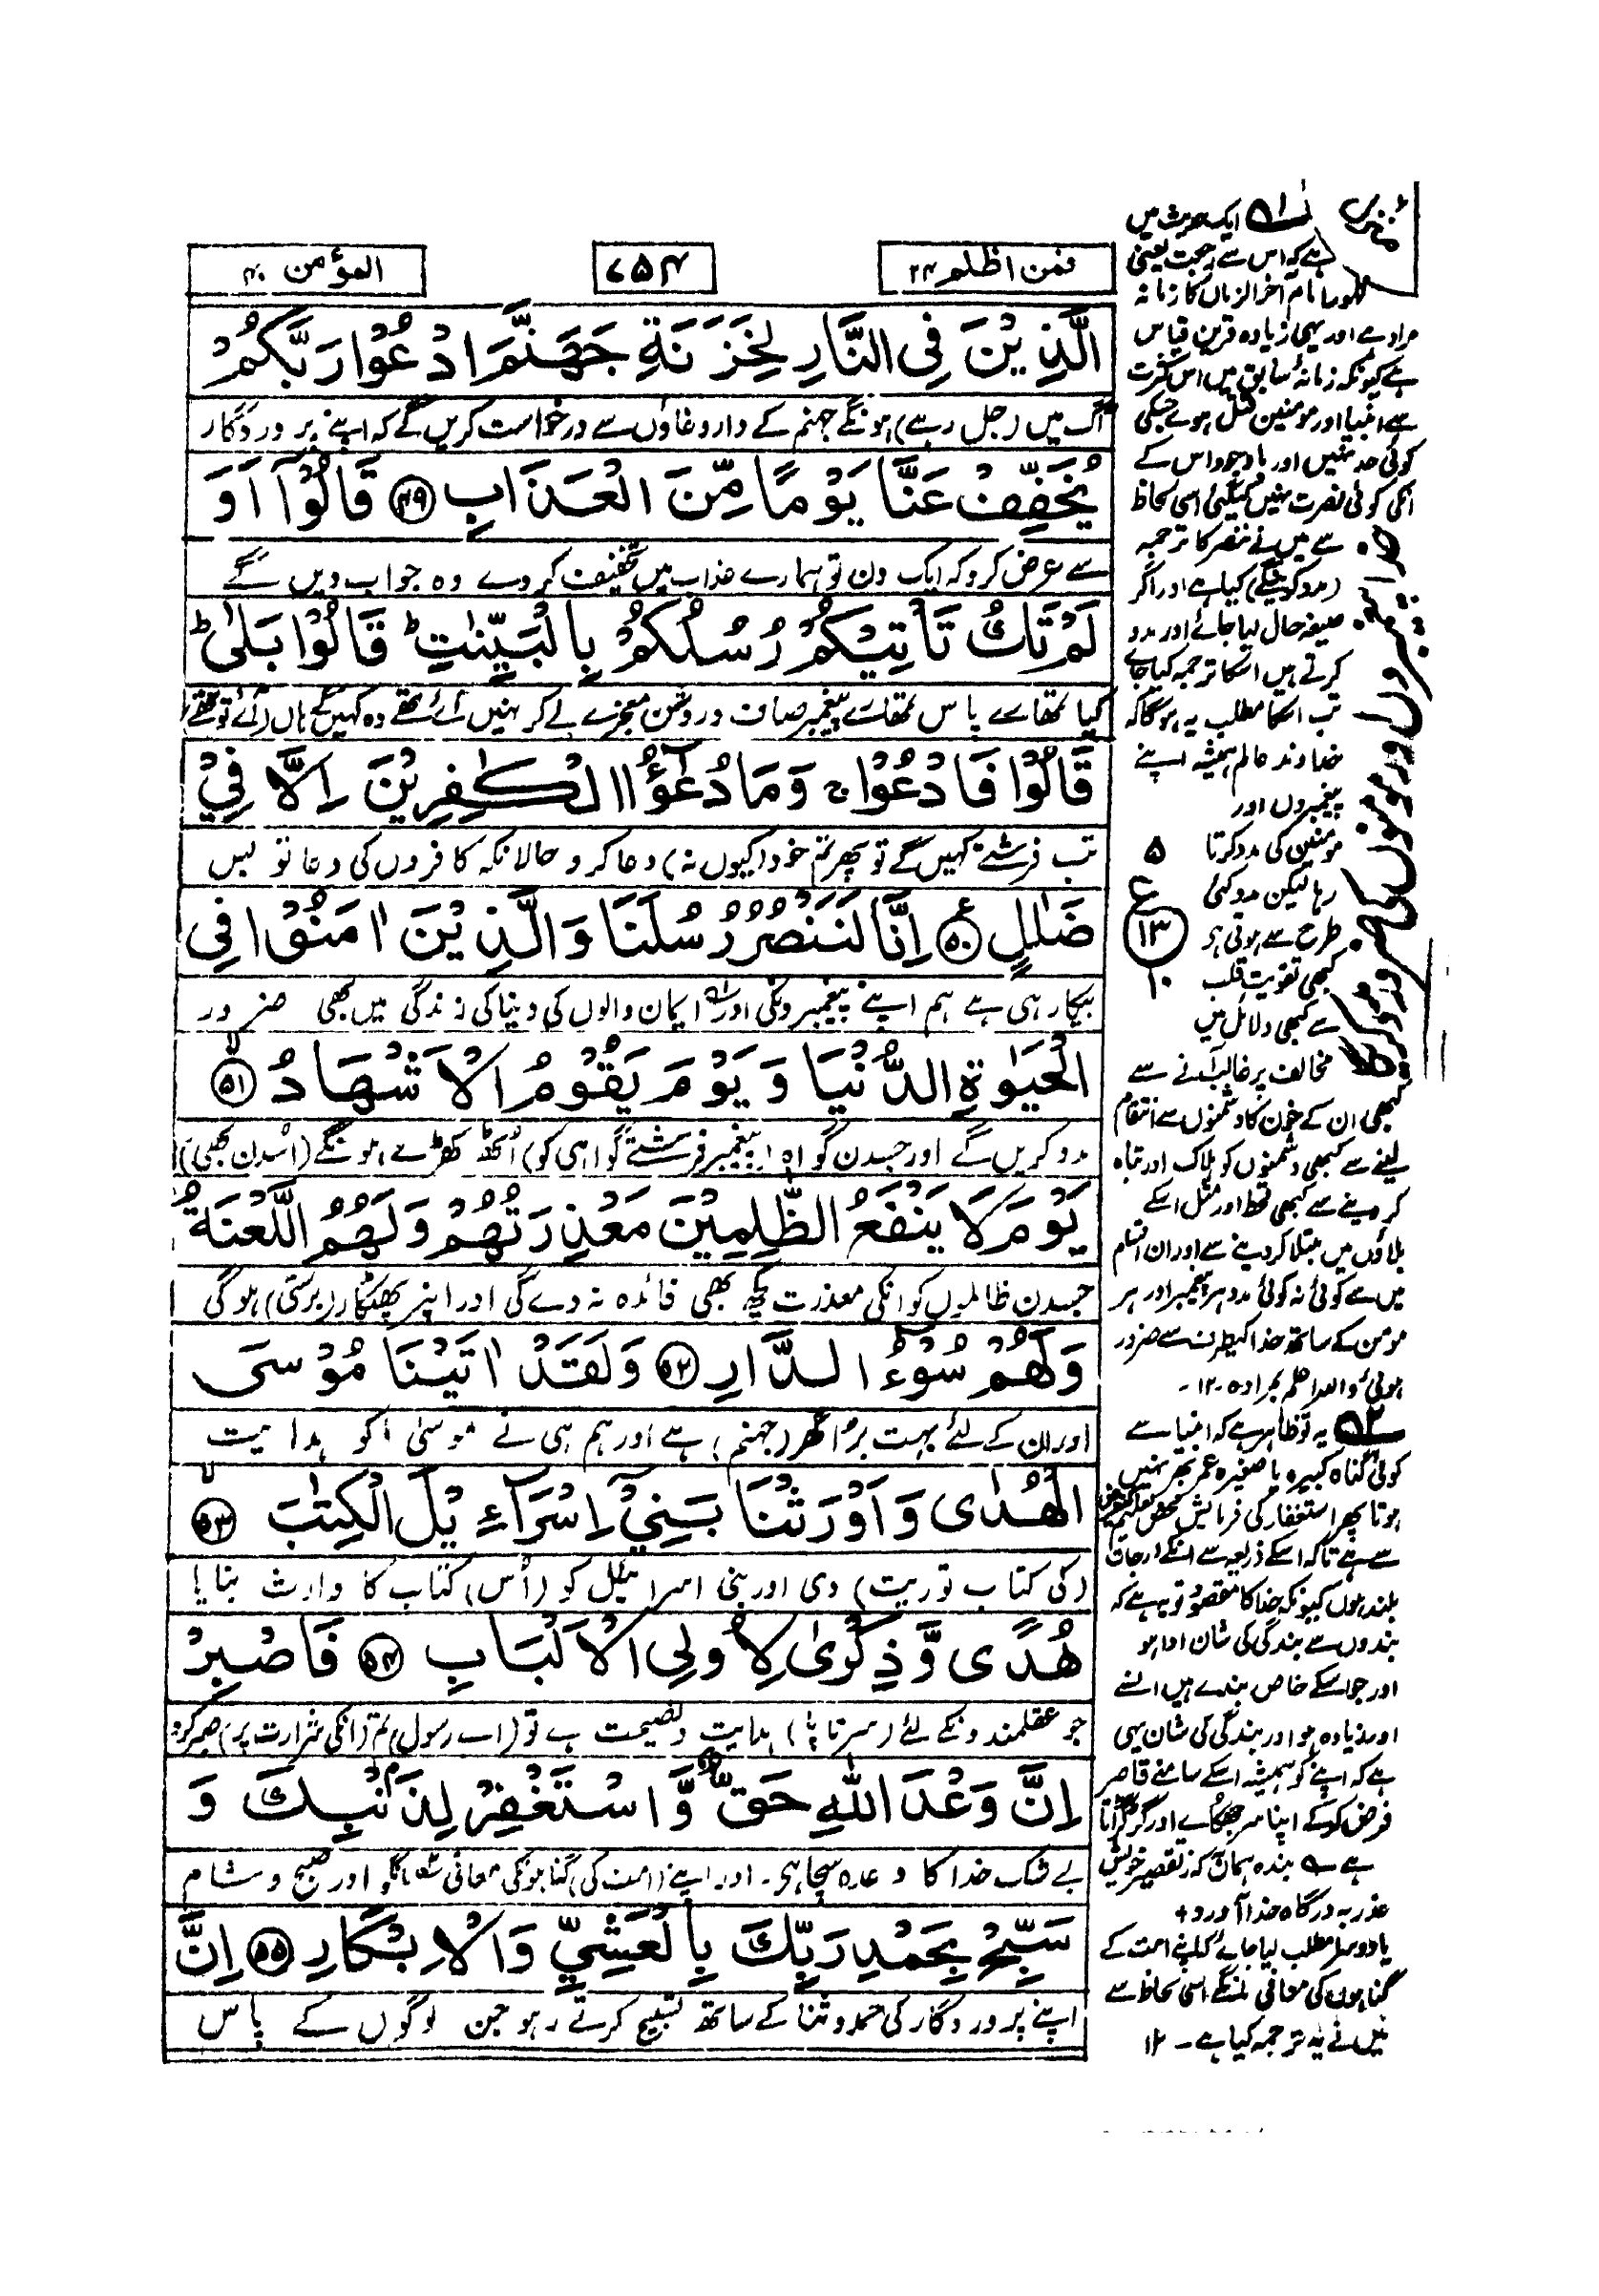 فمن اظلم ۲۴
۷۵۴
المؤمن ۴۰
الَّذِيْنَ فِى النَّارِ لِخَزَنَةِ جَهَنَّمَ ادْعُوْا رَبَّكُمْ
آگ میں (جل رہے) ہونگے جہنم کے داروغاؤں سے درخواست کریں گے کہ اپنے پروردگار
يُخَفِّفْ عَنَّا يَوْمًا مِّنَ الْعَذَابِ ﴿۴۹﴾ قَالُوْۤا اَوَ
سے عرض کرو کہ ایک دن تو ہمارے عذاب میں تخفیف کر دے وہ جواب دیں گے
لَمْ تَكُ تَاْتِيْكُمْ رُسُلُكُمْ بِالْبَيِّنٰتِ ؕ قَالُوْا بَلٰى ؕ
کیا تمھارے پاس تمھارے پیغمبر صاف و روشن معجزے لے کر نہیں آئے تھے وہ کہیں گے ہاں (آئے تو تھے)
قَالُوْا فَادْعُوْا ۚ وَمَا دُعٰٓؤُا الْكٰفِرِيْنَ اِلَّا فِيْ
تب فرشتے کہیں گے تو پھر تم خود (کیوں نہ) دعا کرو حالانکہ کافروں کی دعا تو بس
ضَلٰلٍ ﴿۵۰﴾ اِنَّا لَنَنْصُرُ رُسُلَنَا وَالَّذِيْنَ اٰمَنُوْا فِى
بیکار ہی ہے ہم اپنے پیغمبرونکی اور ایمان والوں کی دنیا کی زندگی میں بھی ضرور
الْحَيٰوةِ الدُّنْيَا وَيَوْمَ يَقُوْمُ الْاَشْهَادُ ﴿۵۱﴾ ۙ
مدد کریں گے اور جسدن گواہ (پیغمبر فرشتے گواہی کو) اُٹھ کھڑے ہونگے (اُسدن بھی)
يَوْمَ لَا يَنْفَعُ الظّٰلِمِيْنَ مَعْذِرَتُهُمْ وَلَهُمُ اللَّعْنَةُ
جسدن ظالموں کو انکی معذرت کچھ بھی فائدہ نہ دے گی اور انپر پھٹکار (برستی) ہوگی
وَلَهُمْ سُوْٓءُ الدَّارِ ﴿۵۲﴾ وَلَقَدْ اٰتَيْنَا مُوْسَى
اور ان کے لئے بہت برا گھر (جہنم) ہے اور ہم ہی نے موسیٰ کو ہدایت
الْهُدٰى وَاَوْرَثْنَا بَنِيْۤ اِسْرَآءِيْلَ الْكِتٰبَ ﴿۵۳﴾ ۙ
(کی کتاب توریت) دی اور بنی اسرائیل کو (اُس) کتاب کا وارث بنایا
هُدًى وَّذِكْرٰى لِاُولِى الْاَلْبَابِ ﴿۵۴﴾ فَاصْبِرْ
جو عقلمندونکے لئے (سر تا پا) ہدایت و نصیحت ہے تو (اے رسول) تم (انکی شرارت پر) صبر کرو
اِنَّ وَعْدَ اللّٰهِ حَقٌّ وَّاسْتَغْفِرْ لِذَنْۢبِكَ وَ
بے شک خدا کا وعدہ سچا ہی۔ اور اپنے (امت کی) گناہونکی معافی مانگو اور صبح و شام
سَبِّحْ بِحَمْدِ رَبِّكَ بِالْعَشِيِّ وَالْاِبْكَارِ ﴿۵۵﴾ اِنَّ
اپنے پروردگار کی حمد و ثنا کے ساتھ تسبیح کرتے رہو جن لوگوں کے پاس
۵۱ ایک حدیث میں
ہے کہ اس سے رجعت یعنی
ظہور امام آخر الزماں کا زمانہ
مراد ہے اور یہی زیادہ قرین قیاس
ہے کیونکہ زمانۂ سابق میں اس کثرت
سے انبیا اور مومنین قتل ہوے جنکی
کوئی حد نہیں اور باوجود اس کے
انکی کوئی نصرت نہیں کیگئی اسی لحاظ
سے میں نے ننصر کا ترجمہ
(مدد کرینگے) کیا ہے اور اگر
صیغہ حال لیا جائے اور مدد
کرتے ہیں اسکا ترجمہ کیا جاے
تب اسکا مطلب یہ ہوگا کہ
خداوند عالم ہمیشہ اپنے
پیغمبروں اور
مومنین کی مدد کرتا
رہا لیکن مدد کئی
طرح سے ہوتی ہر
کبھی تقویت قلب
سے کبھی دلائل میں
مخالف پر غالب آنے سے
کبھی ان کے خون کا دشمنوں سے انتقام
لینے سے کبھی دشمنوں کو ہلاک اور تباہ
کر دینے سے کبھی قحط اور مثل اسکے
بلاؤں میں مبتلا کر دینے سے اور ان اقسام
میں سے کوئی نہ کوئی مدد ہر پیغمبر اور ہر
مومن کے ساتھ خدا کیطرف سے ضرور
ہوئی واللہ اعلم بمرادہ ۱۲۔
۵۲ یہ تو ظاہر ہے کہ انبیا سے
کوئی گناہ کبیرہ یا صغیرہ عمر بھر نہیں
ہوتا پھر استغفار کی فرمایش محض
سے ہے تاکہ اسکے ذریعہ سے انکے درجات
بلند ہوں کیونکہ خدا کا مقصود تو یہ ہے کہ
بندوں سے بندگی کی شان ادا ہو
اور جو اسکے خاص بندے ہیں انسے
اور زیادہ ہو اور بندگی کی شان یہی
ہے کہ اپنے کو ہمیشہ اسکے سامنے قاصر
فرض کرکے اپنا سر جھکاے اور گڑگڑاتا
ہے بندہ ہماں کہ ز تقصیر خویش
عذر بہ درگاہ خدا آورد +
یا دوسرا مطلب لیا جائے کہ اپنے امت کے
گناہوں کی معافی مانگے اسی لحاظ سے
میں نے یہ ترجمہ کیا ہے ۔ ۱۲
۵
ع
۱۳
۱۰